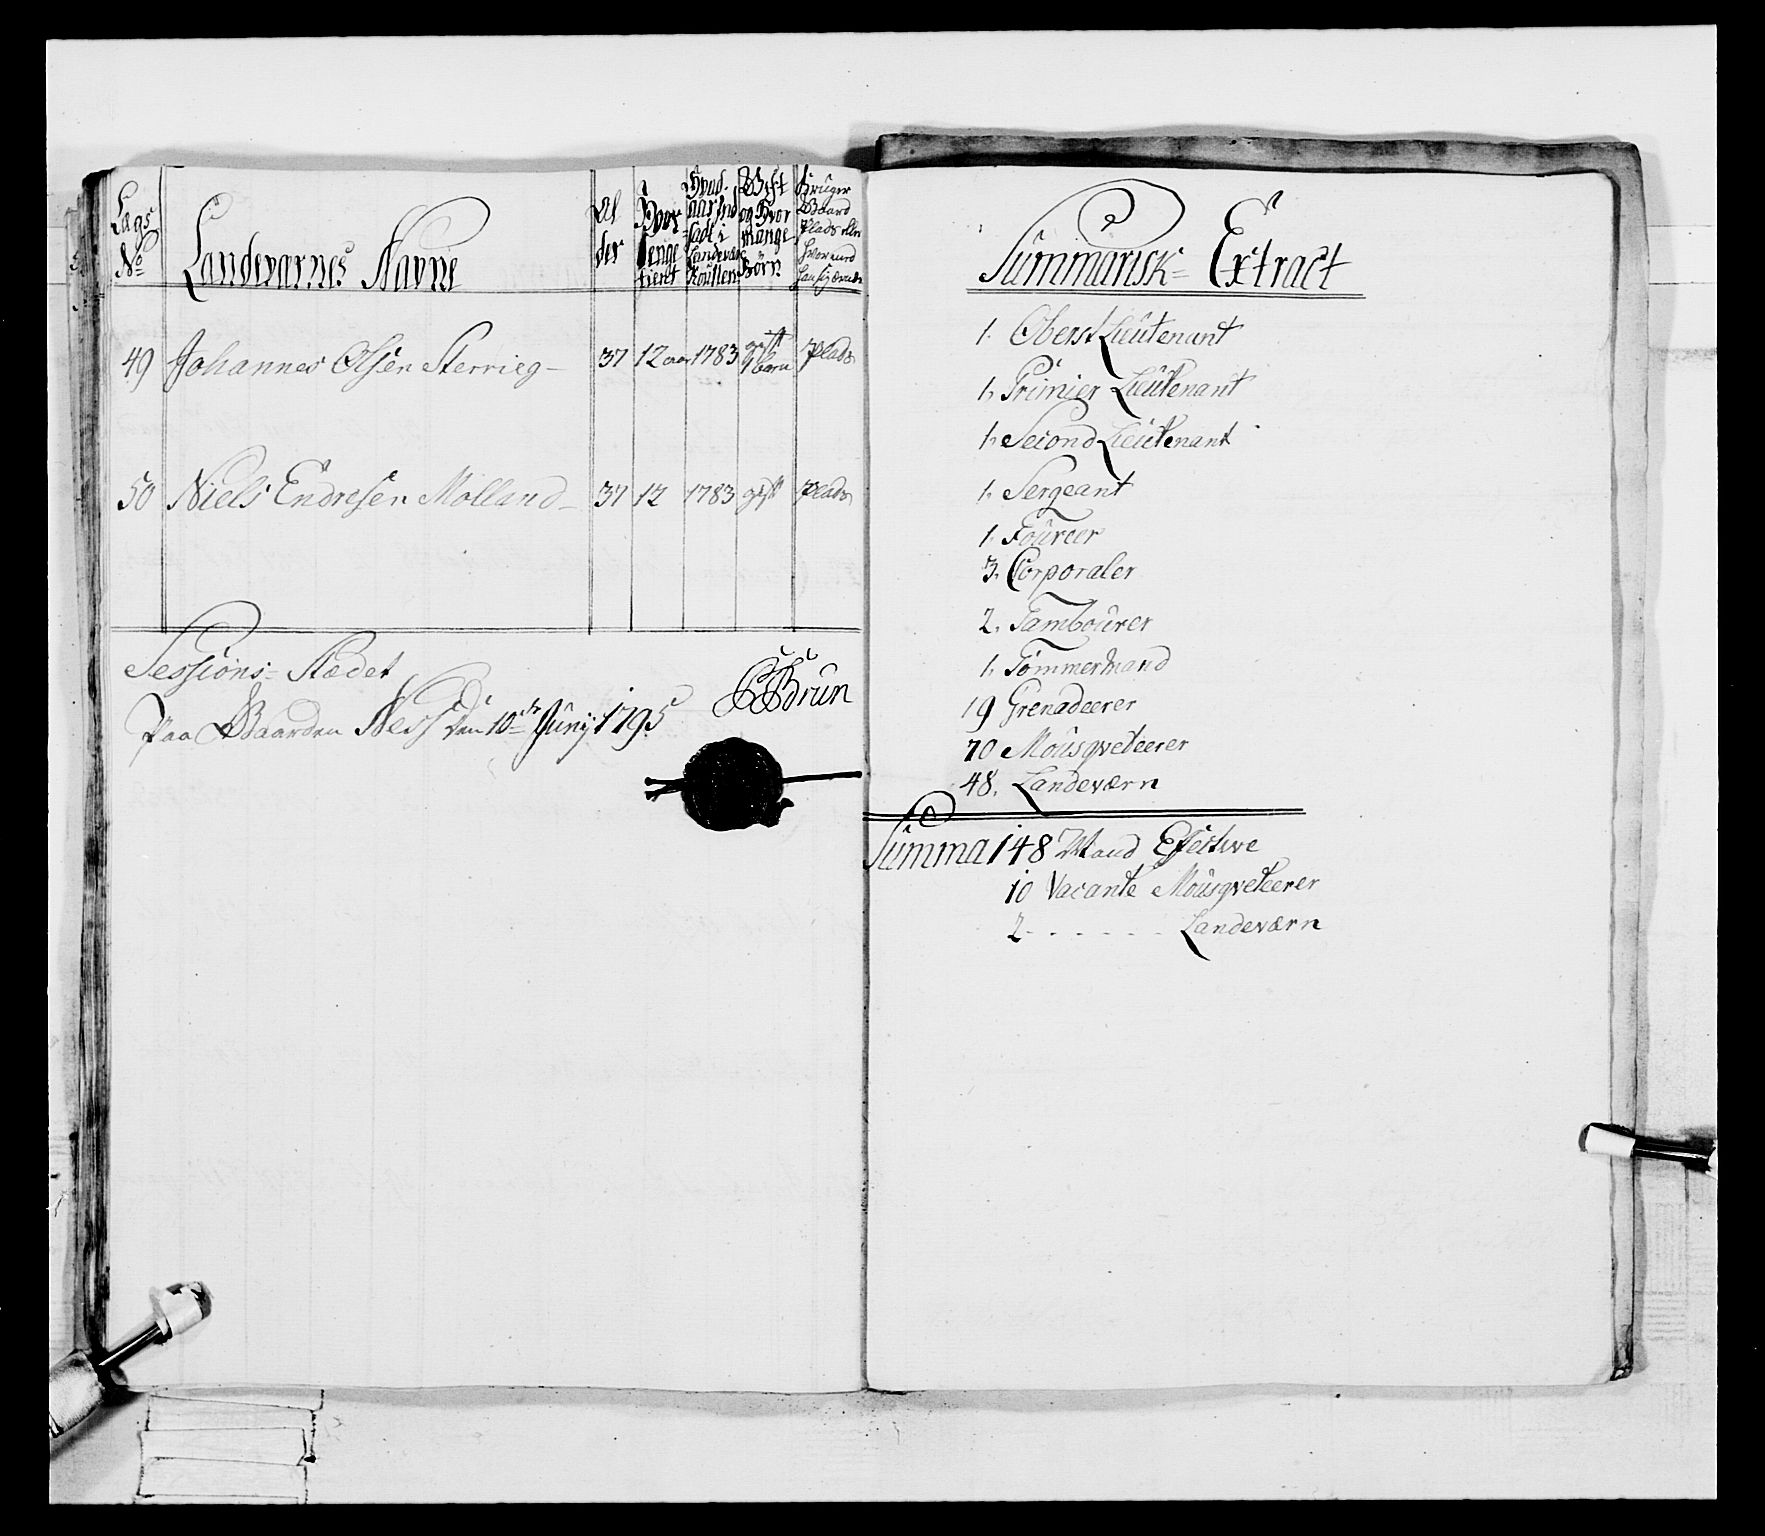 Lægs No
Landeværnes Navne
Al der
Hvor længe tient
Hvad aar Ind sadt i Landeværs Roullen
Gift og Hvor mange Börn
Bruger Gaard Plads eller hvormed han sig ernærer
49 Johannes Olsen Sterrieg - 37 12 aar 1783 gift 1 barn Plads
50 Niels Endresen Molland - 37 12 1783 gift Plads
Sessions-Stædet
Paa Gaarden Ness den 10de Junij 1795
Brun
Summarisk Extract
1. Oberst Lieutenant
1. Primier Lieutenant
1. Second Lieutenant
1. Sergeant
1. Foureer
3. Corporaler
2. Tambourer
1. Tömmermand
19 Grenadeerer
70 Mousqveteerer
48. Landeværn
Summa 148 Mand Efective
10 Vacante Mousqveteerer
2 - - - - - - Landeværn